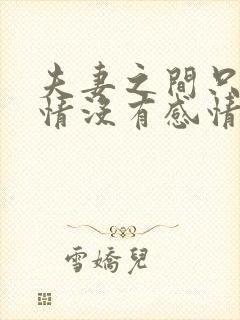 夫妻之間只
情沒有感情
雪嬌兒